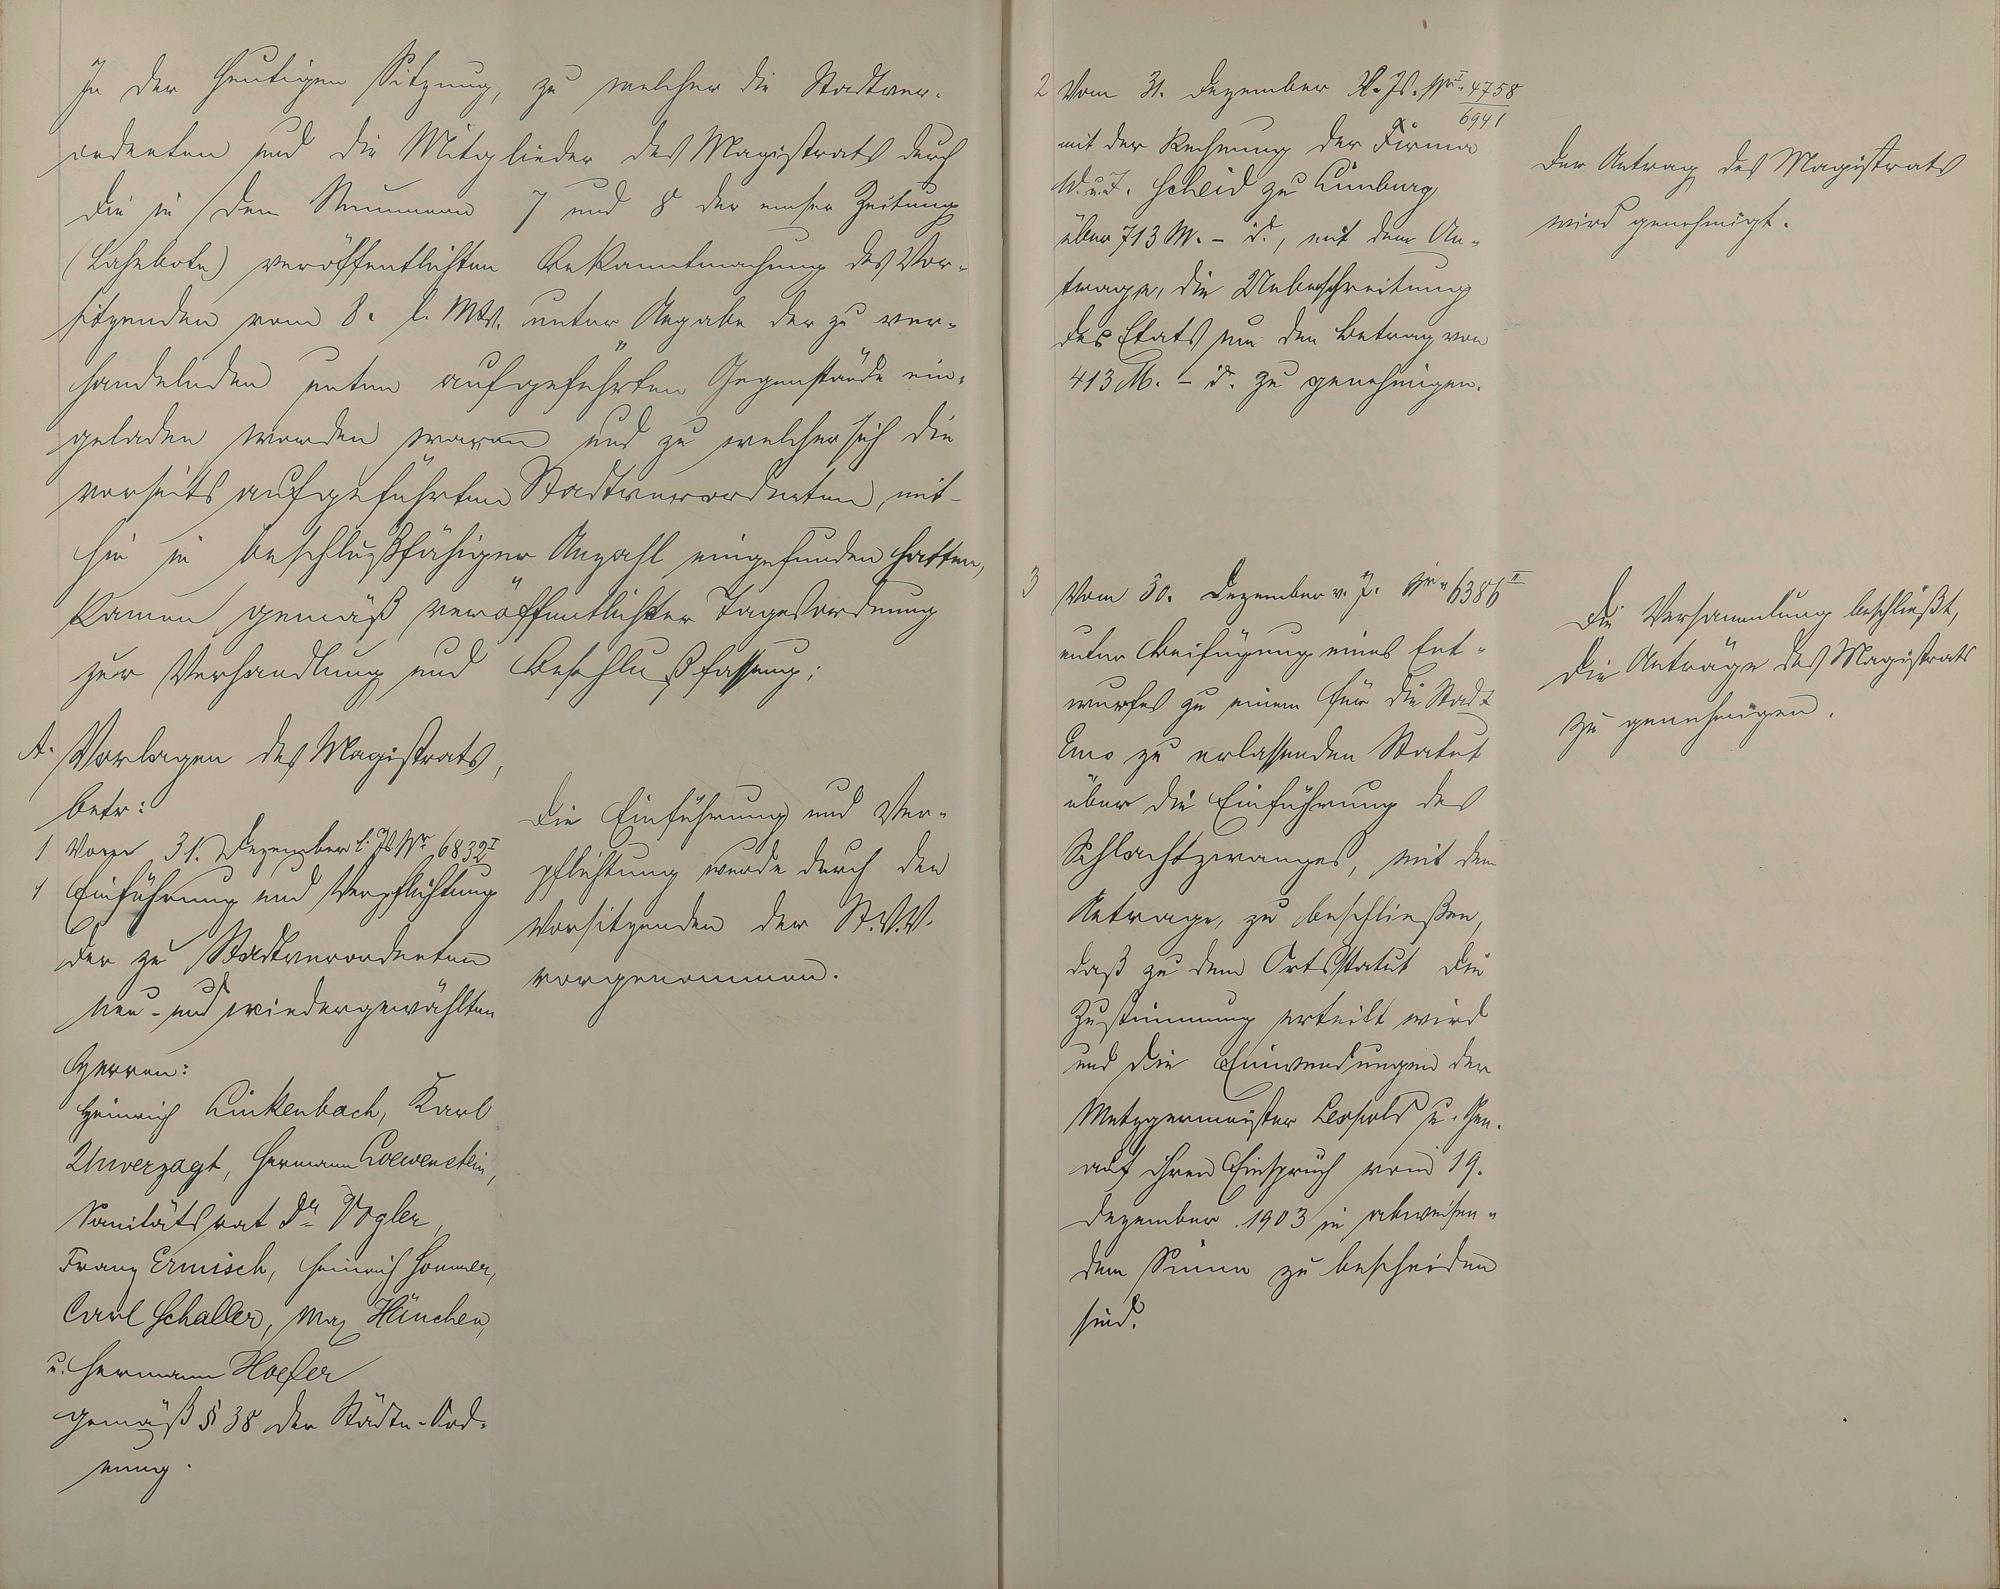 In der heutigen Sitzung, zu welcher die Stadtver-
ordneten und die Mitglieder des Magistrats durch
die in den Nummern 7 und 8 der Emser Zeitung
(Lahnbote) veröffentlichten Bekanntmachung des Vor-
sitzenden vom 8. l. Mts. unter Angabe der zu ver-
handelnden unten aufgeführten Gegenstände ein-
geladen worden waren und zu welcher sich die
vorseits aufgeführten Stadtverordneten, mit-
hin in beschlußfähiger Anzahl eingefunden hatten,
kamen gemäß veröffentlichter Tagesordnung
zur Verhandlung und Beschlußfassung:
A. Vorlagen des Magistrats,
betr:
1 Vom 31. Dezember l. Js. Nr 6832 I
1 Einführung und Verpflichtung
der zu Stadtverordneten
neu- und wiedergewählten
Herren:
Heinrich Linkenbach, Karl
Unverzagt, Hermann Loewenstein,
Sanitätsrat Dr Vogler,
Franz Ermisch, Heinrich Sommer,
Carl Schaller, Max Hünchen,
u. Hermann Hoefer
gemäß § 38 der Städte-Ord-
nung.
Die Einführung und Ver-
pflichtung wurde durch den
Vorsitzenden der St.V.V.
vorgenommen.
2 Vom 31. Dezember v. Js. Nr I. 4758
6941
mit der Rechnung der Firma
W. u. J. Scheid zu Limburg
über 713 M. - d., mit dem An-
trage, die Ueberschreitung
des Etats um den Betrag von
413 M. - d. zu genehmigen.
Der Antrag des Magistrats
wird genehmigt.
3 Vom 30. Dezember v. J. Nr 6386 II
unter Beifügung eines Ent-
wurfes zu einem für die Stadt
Ems zu erlassenden Statut
über die Einführung des
Schlachtzwanges, mit dem
Antrage, zu beschließen,
daß zu dem Ortsstatut die
Zustimmung erteilt wird
und die Einwendungen der
Metzgermeister Leopold u. Gen.
auf ihren Einspruch vom 19.
Dezember 1903 in abweisen-
dem Sinne zu bescheiden
sind.
Die Versammlung beschließt,
die Anträge des Magistrats
zu genehmigen.